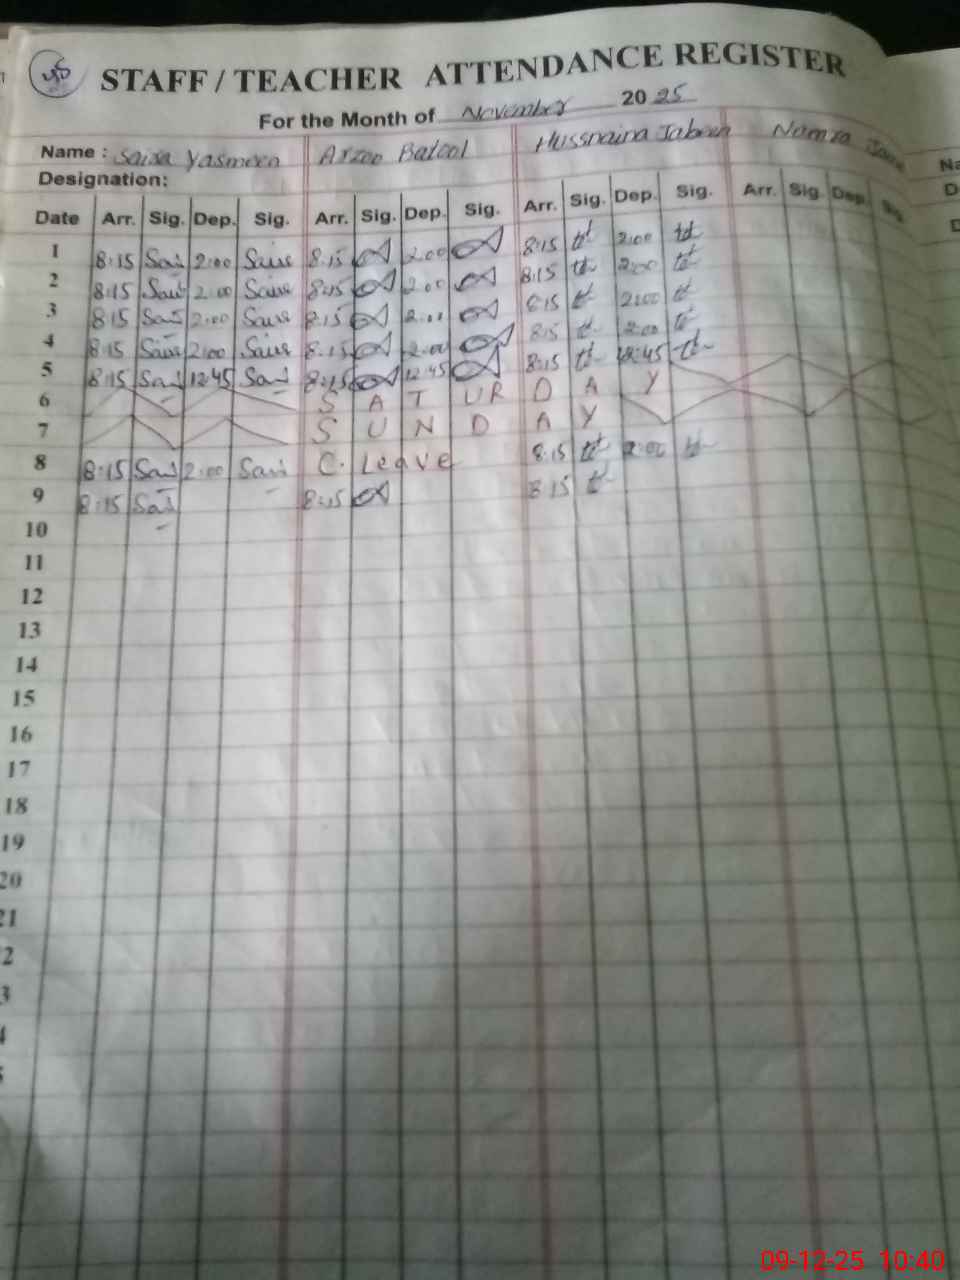 STAFF / TEACHER ATTENDANCE REGISTER
For the Month of November 2025
Name : Saira Yasmeen Arzoo Batool Hussnaina Jabeen
Designation:
Date Arr. Sig. Dep. Sig. Arr. Sig. Dep. Sig. Arr. Sig. Dep. Sig. Arr. Sig. Dep. Sig.
1 8:15 2:00 8:15 2:00 8:15 2:00
2 8:15 2:00 8:15 2:00 8:15 2:00
3 8:15 2:00 8:15 2:00 8:15 2:00
4 8:15 2:00 8:15 2:00 8:15 2:00
5 8:15 12:45 8:15 12:45 8:15 12:45
6 SATURDAY
7 SUNDAY
8 8:15 2:00 C. Leave 8:15 2:00
9 8:15 8:15 8:15
10
11
12
13
14
15
16
17
18
19
20
21
2
3
09-12-25 10:40